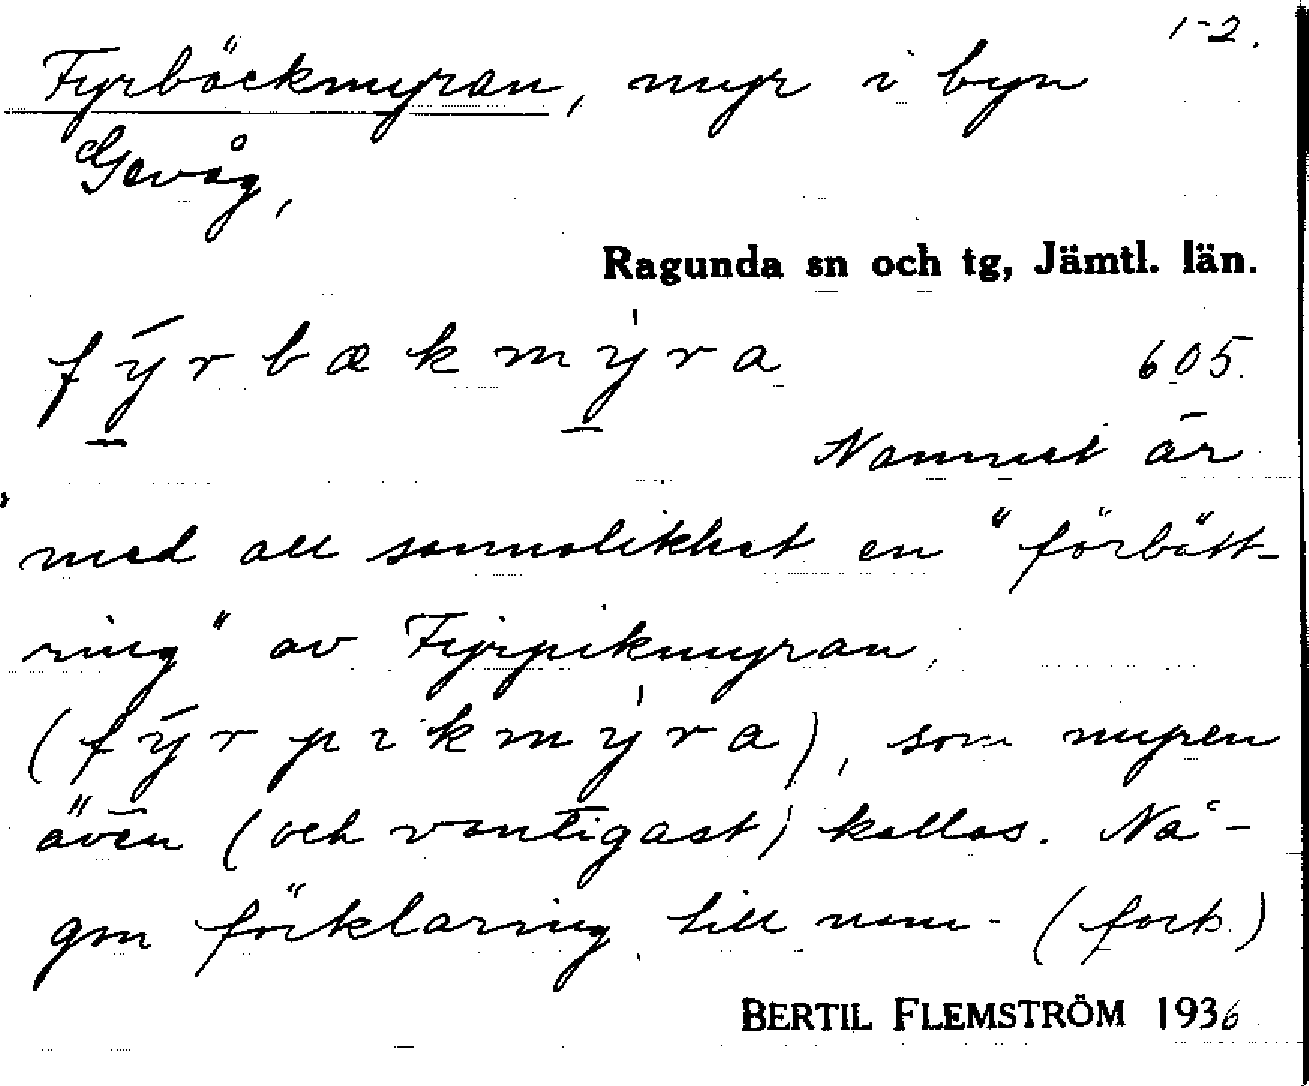 1-2.
Fyrbäckmyran, myr i byn
Gevåg,
Ragunda sn och tg, Jämtl. län.
fý̱rbækmy̱̍ra 605.
Namnet är
med all sannolikhet en "förbätt-
ring" av Fyrpikmyran,
(fý̱rpikmy̱̍ra), som myren
även (och vanligast) kallas. Nå-
gon förklaring till nam- (forts.)
BERTIL FLEMSTRÖM 1936